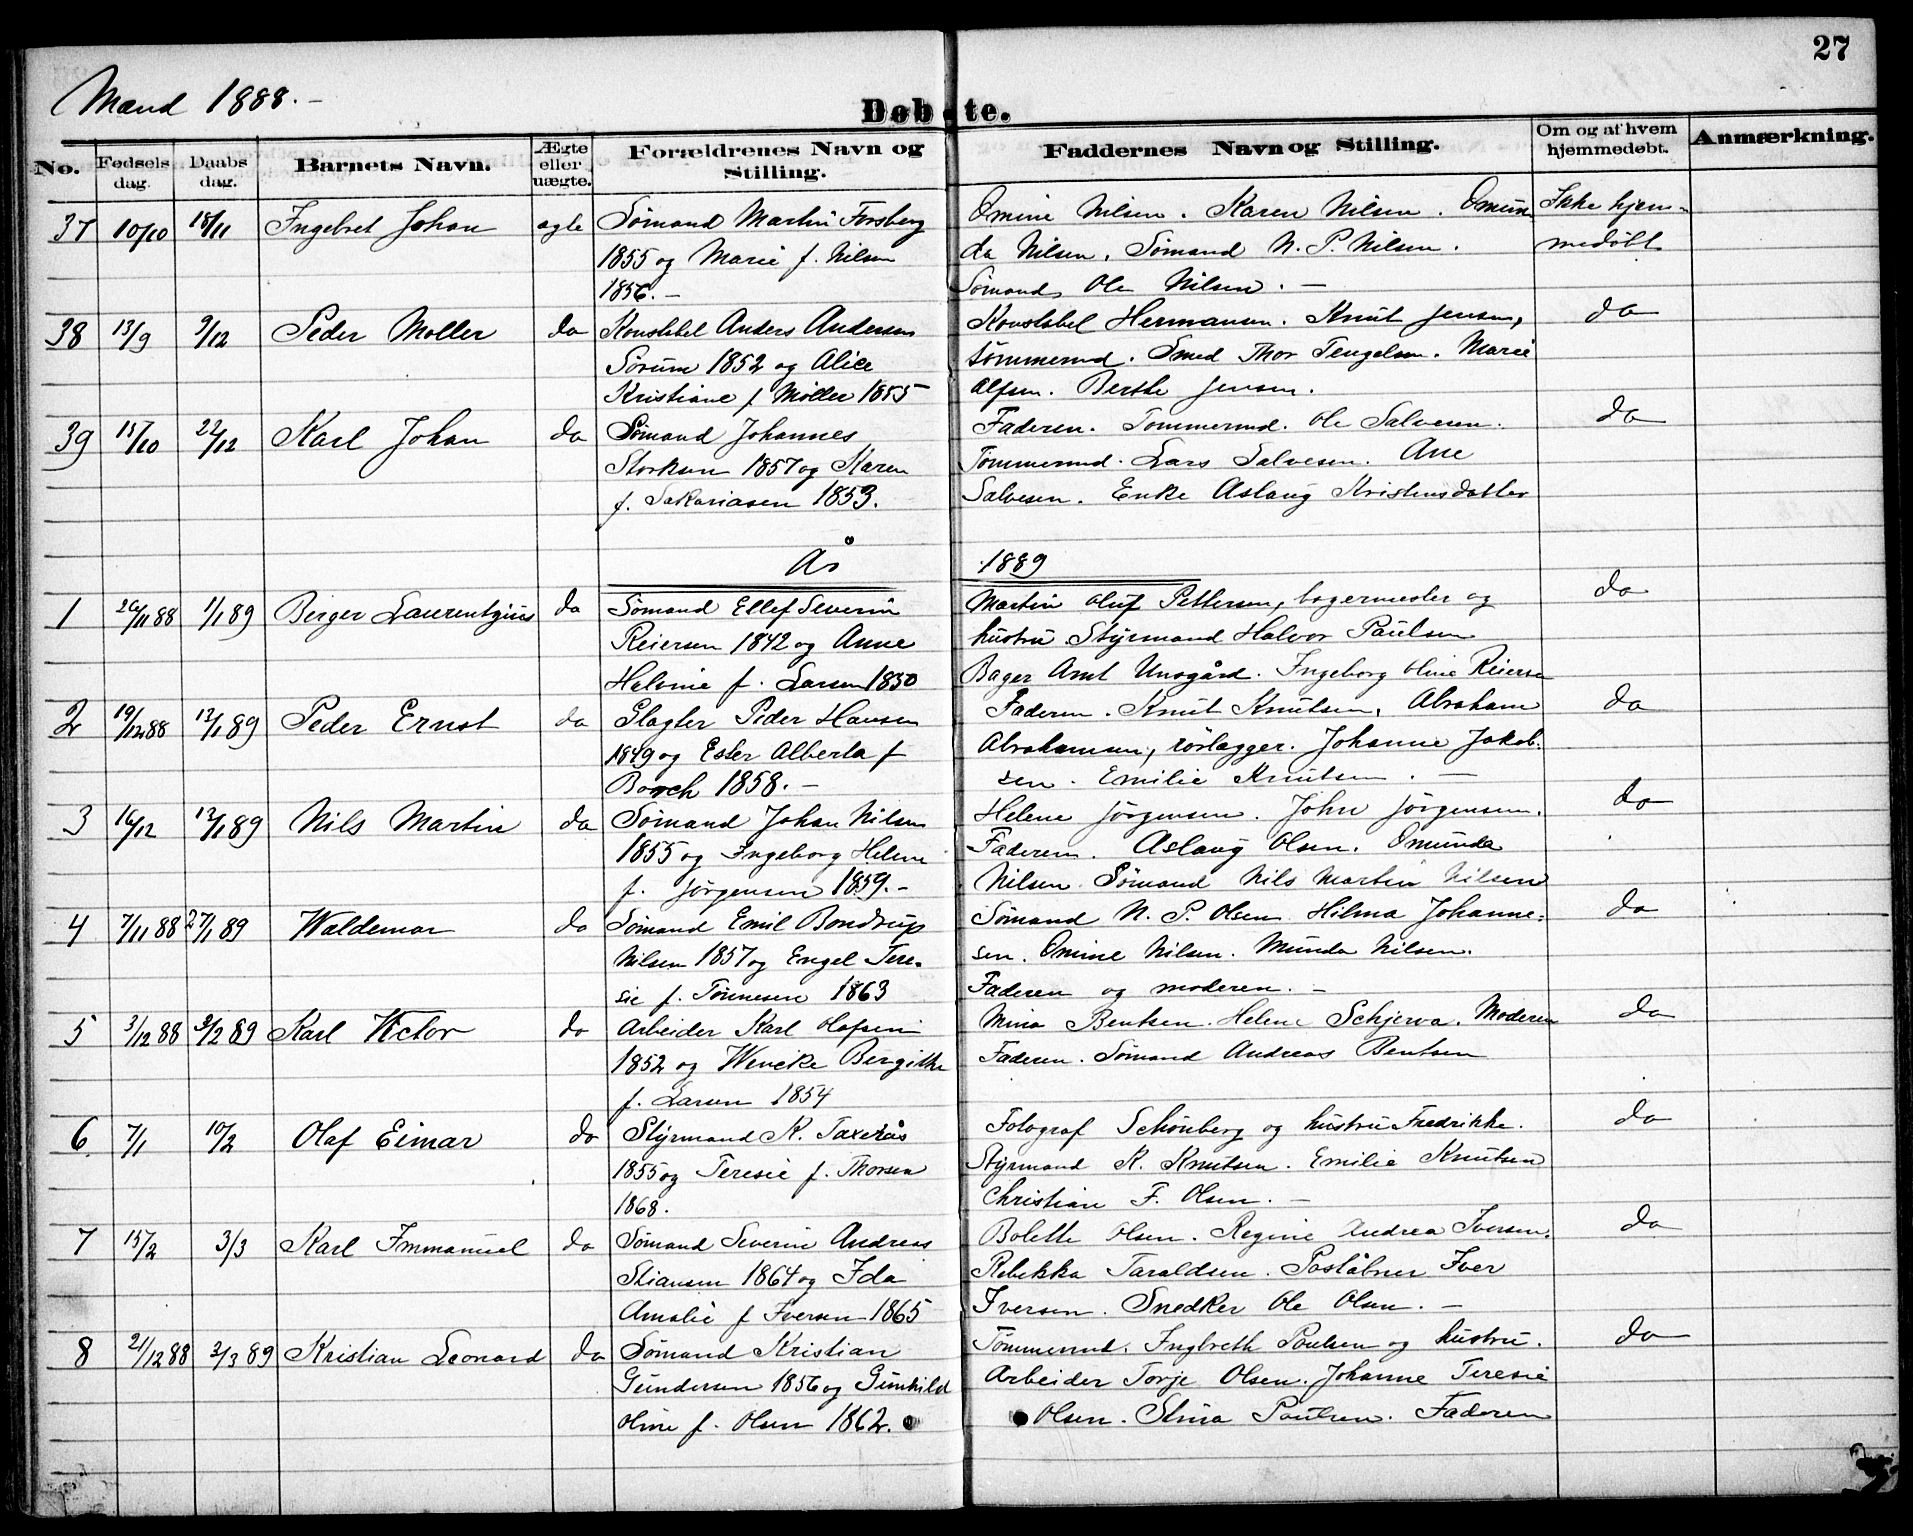 27
Mænd 1888. –
Døbte.
No. Fødsels dag. Daabs dag. Barnets Navn. Ægte eller uægte. Forældrenes Navn og Stilling. Faddernes Navn og Stilling. Om og af hvem hjemmedøbt. Anmærkning.
37 10/10 18/11 Ingebret Johan ægte Sømand Martin Forsberg Omine Nilsen. Karen Nilsen. Omun Ikke hjem-
1855 og Marie f. Nilsen da Nilsen, Sømand N. P. Nilsen. medøbt
1856. – Sømand, Ole Nilsen. –
38 13/9 9/12 Peder Møller do Konstabel Anders Andersen Konstabel Hermansen. Knut Jensen, do
Sørum 1852 og Alice tømmermd. Smed Thor Tengelsen. Marie
Kristiane f Møller 1855 Alfsen. Berthe Jensen.
39 15/10 22/12 Karl Johan do Sømand Johannes Faderen. Tømmermd. Ole Salvesen. do
Storksen 1857 og Karen Tømmermd. Lars Salvesen. Ane
f. Sakariasen 1853. Salvesen. Enke Aslaug Kristensdatter
År 1889
1 26/11 88 1/1 89 Birger Laurentzius do Sømand Ellef Severin Martin Oluf Pettersen, bagermester og do
Reiersen 1842 og Anne hustru. Styrmand Halvor Paulsen
Helmine f. Larsen 1850 Bager Amt Unsgård. Ingeborg Oline Reierse
2 19/12 88 13/1 89 Peder Ernst do Slagter Peder Hansen Faderen. Knut Knutsen, Abraham do
1849 og Ester Alberta f Abrahamsen, rørlægger. Johanne Jakob-
Borch 1858. – sen. Emilie Knutsen. –
3 16/12 13/1 89 Nils Martin do Sømand Johan Nilsen Helene Jørgensen. John Jørgensen. do
1855 og Ingeborg Helene Faderen. Aslaug Olsen. Omunda
f. Jørgensen 1859. – Nilsen. Sømand Nils Martin Nilsen
4 7/11 88 27/1 89 Waldemar do Sømand Emil Bondrup Sømand N. P. Olsen. Hilma Johanne- do
Nilsen 1857 og Engel Tere- sen. Omine Nilsen. Munda Nilsen.
sie f. Tønnesen 1863 Faderen og moderen. –
5 3/12 88 3/2 89 Karl Victor do Arbeider Karl Olafsen Mina Bentsen. Helene Schjerva. Moderen do
1852 og Wencke Bergitte Faderen. Sømand Andreas Bentsen
f. Larsen 1854
6. 7/1 10/2 Olaf Eimar do Styrmand K. Taxerås Fotograf Schønberg og hustru Fredrikke. do
1855 og Teresie f. Thorsen Styrmand K. Knutsen. Emilie Knutsen
1868. Christian F. Olsen. –
7 15/2 3/3 Karl Immanuel do Sømand Severin Andreas Bolette Olsen. Regine Andrea Iversen. do
Stiansen 1864 og Ida Rebekka Taraldsen. Poståbner Iver
Amalie f Iversen 1865 Iversen. Snedker Ole Olsen. –
8 21/12 88 3/3 89 Kristian Leonard do Sømand Kristian Tømmermd. Ingbreth Poulsen og hustru. do
Gundersen 1856 og Gunhild Arbeider Torje Olsen. Johanne Teresie
Oline f. Olsen 1862. Olsen. Stina Poulsen. Faderen